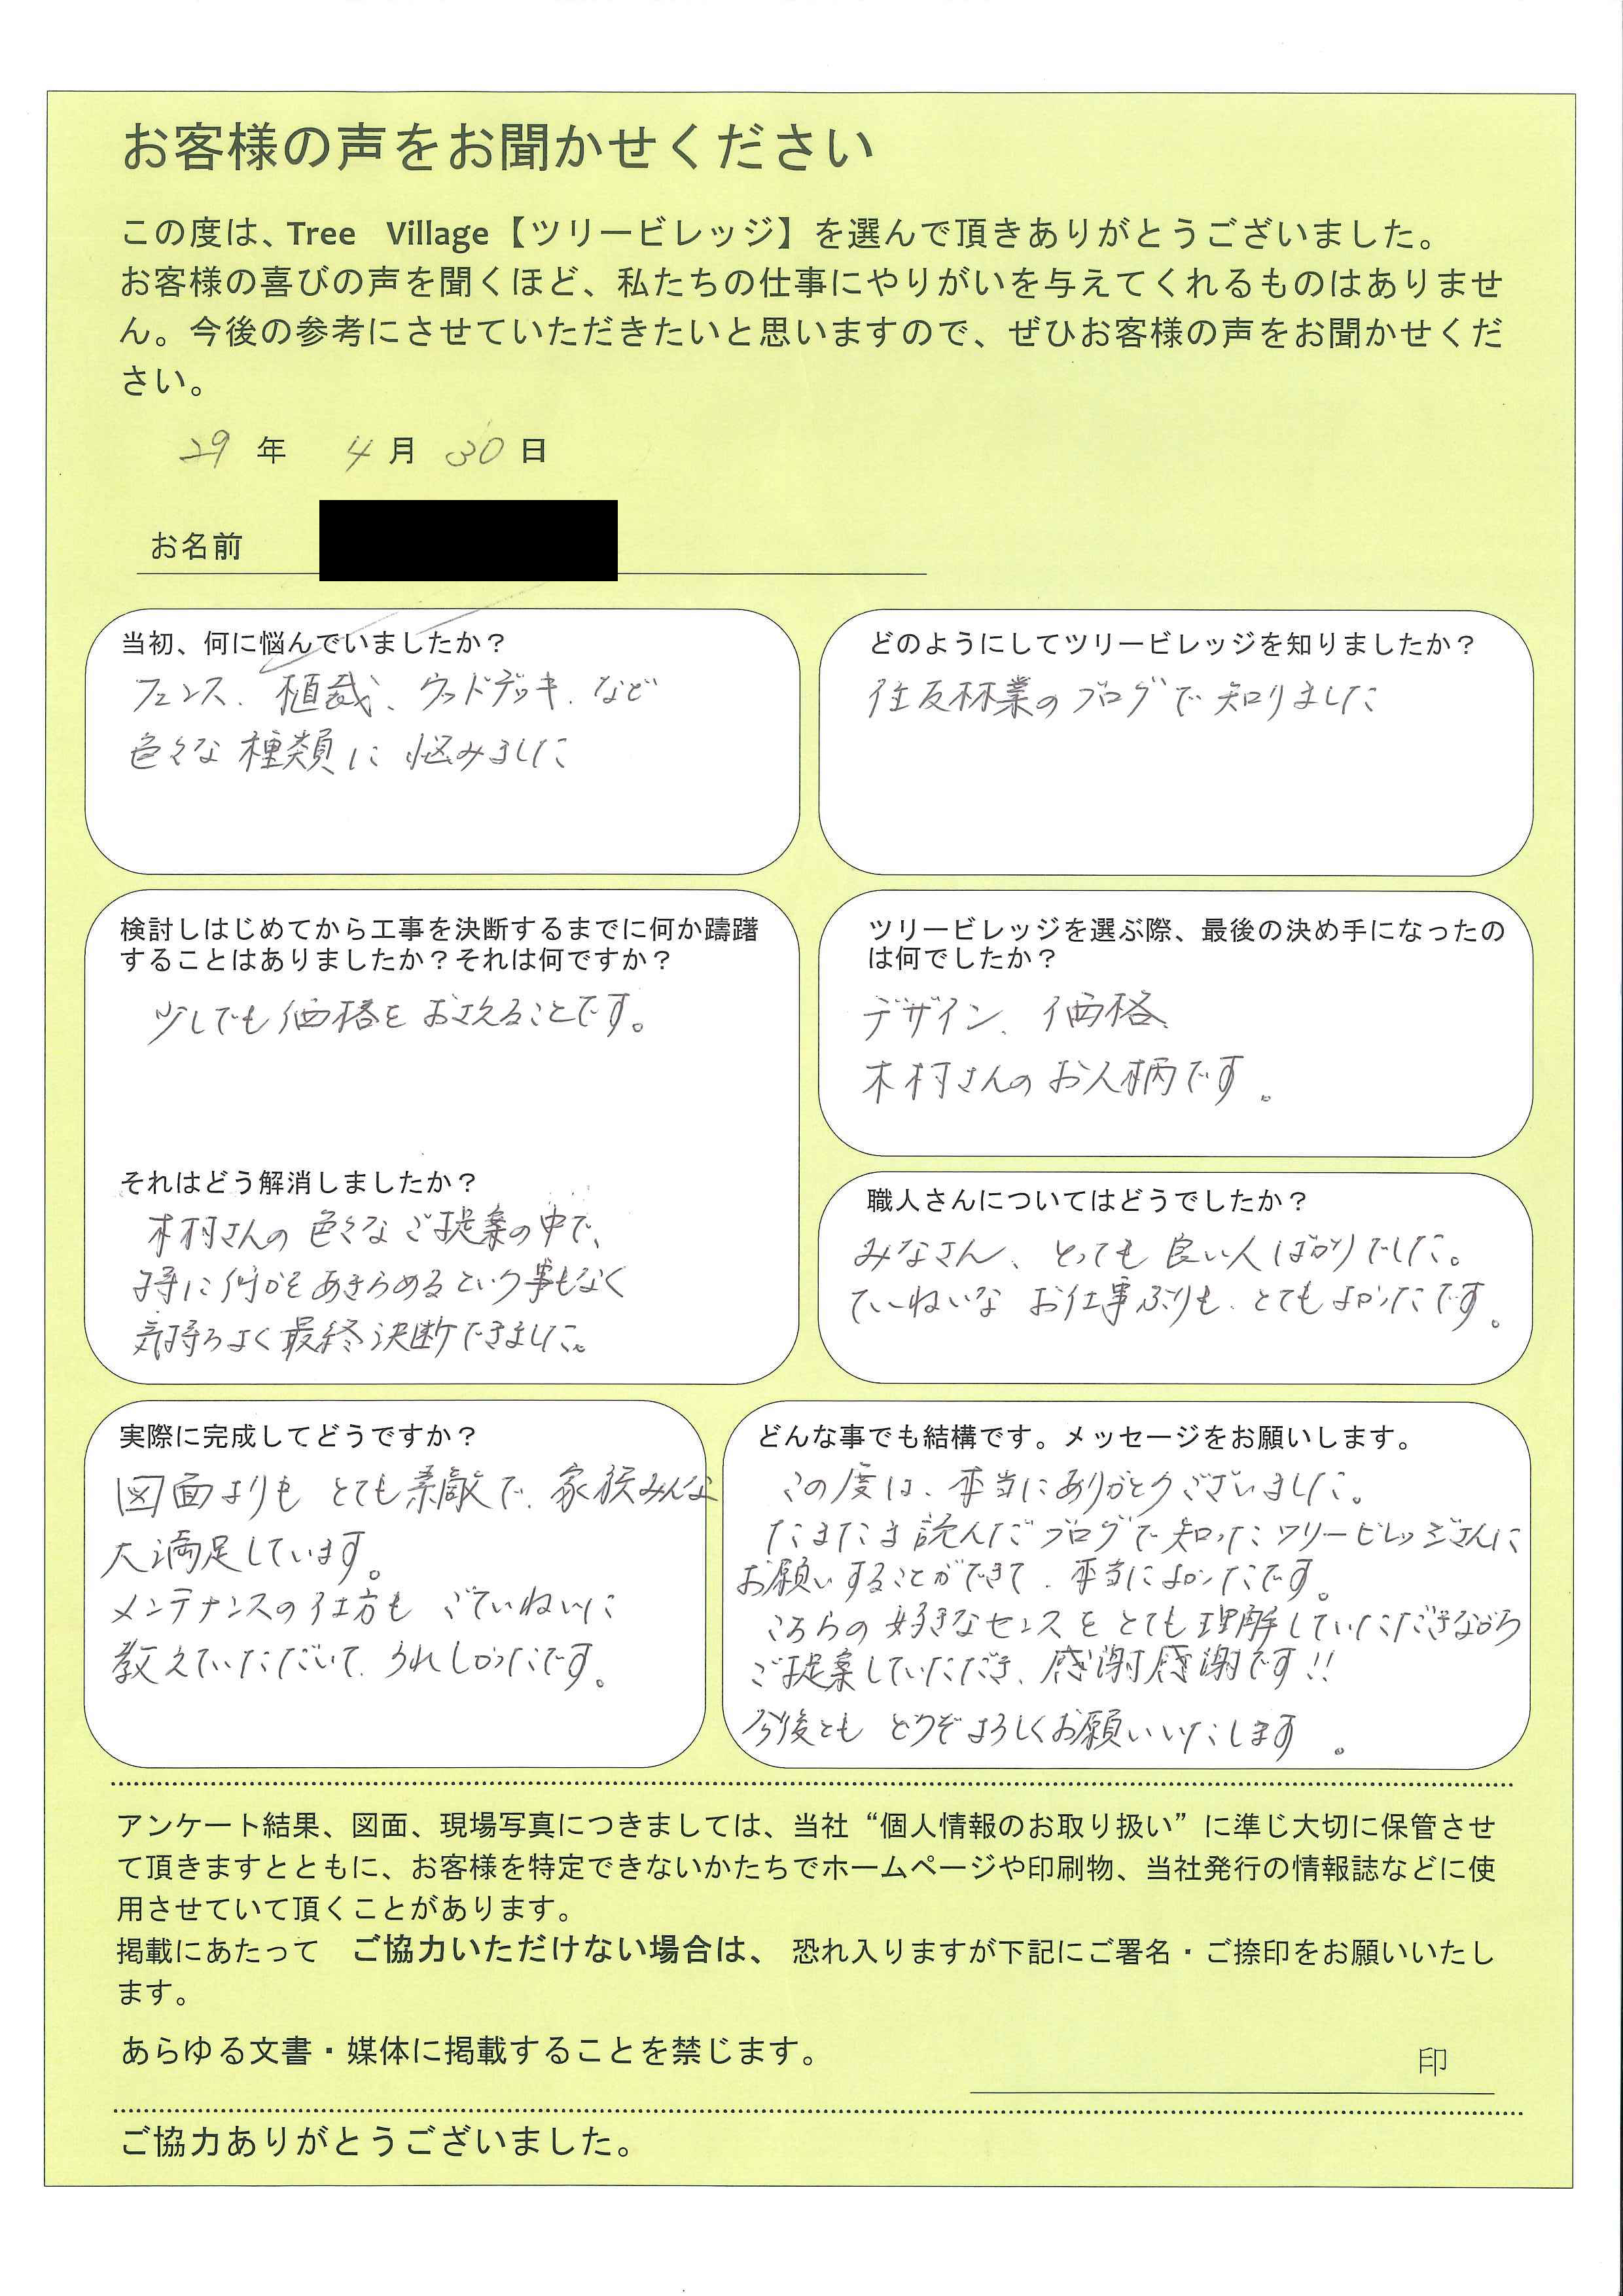 お客様の声をお聞かせください
この度は、Tree Village【ツリービレッジ】を選んで頂きありがとうございました。
お客様の喜びの声を聞くほど、私たちの仕事にやりがいを与えてくれるものはありませ
ん。今後の参考にさせていただきたいと思いますので、ぜひお客様の声をお聞かせくだ
さい。
29 年 4 月 30 日
お名前
当初、何に悩んでいましたか？
フェンス、植栽、ウッドデッキ、など
色々な種類に悩みました
どのようにしてツリービレッジを知りましたか？
住友林業のブログで知りました
検討しはじめてから工事を決断するまでに何か躊躇
することはありましたか？それは何ですか？
少しでも価格をおさえることです。
それはどう解消しましたか？
木村さんの色々なご提案の中で、
特に何かをあきらめるという事もなく
気持ちよく最終決断できました。
ツリービレッジを選ぶ際、最後の決め手になったの
は何でしたか？
デザイン、価格、
木村さんのお人柄です。
職人さんについてはどうでしたか？
みなさん、とっても良い人ばかりでした。
ていねいなお仕事ぶりも、とてもよかったです。
実際に完成してどうですか？
図面よりもとても素敵で、家族みんな
大満足しています。
メンテナンスの仕方もごていねいに
教えていただいて、うれしかったです。
どんな事でも結構です。メッセージをお願いします。
この度は、本当にありがとうございました。
たまたま読んだブログで知ったツリービレッジさんに
お願いすることができて、本当によかったです。
こちらの好きなセンスをとても理解していただきながら
ご提案していただき、感謝感謝です!!
今後ともどうぞよろしくお願いいたします。
アンケート結果、図面、現場写真につきましては、当社“個人情報のお取り扱い”に準じ大切に保管させ
て頂きますとともに、お客様を特定できないかたちでホームページや印刷物、当社発行の情報誌などに使
用させていて頂くことがあります。
掲載にあたって ご協力いただけない場合は、 恐れ入りますが下記にご署名・ご捺印をお願いいたし
ます。
あらゆる文書・媒体に掲載することを禁じます。
印
ご協力ありがとうございました。